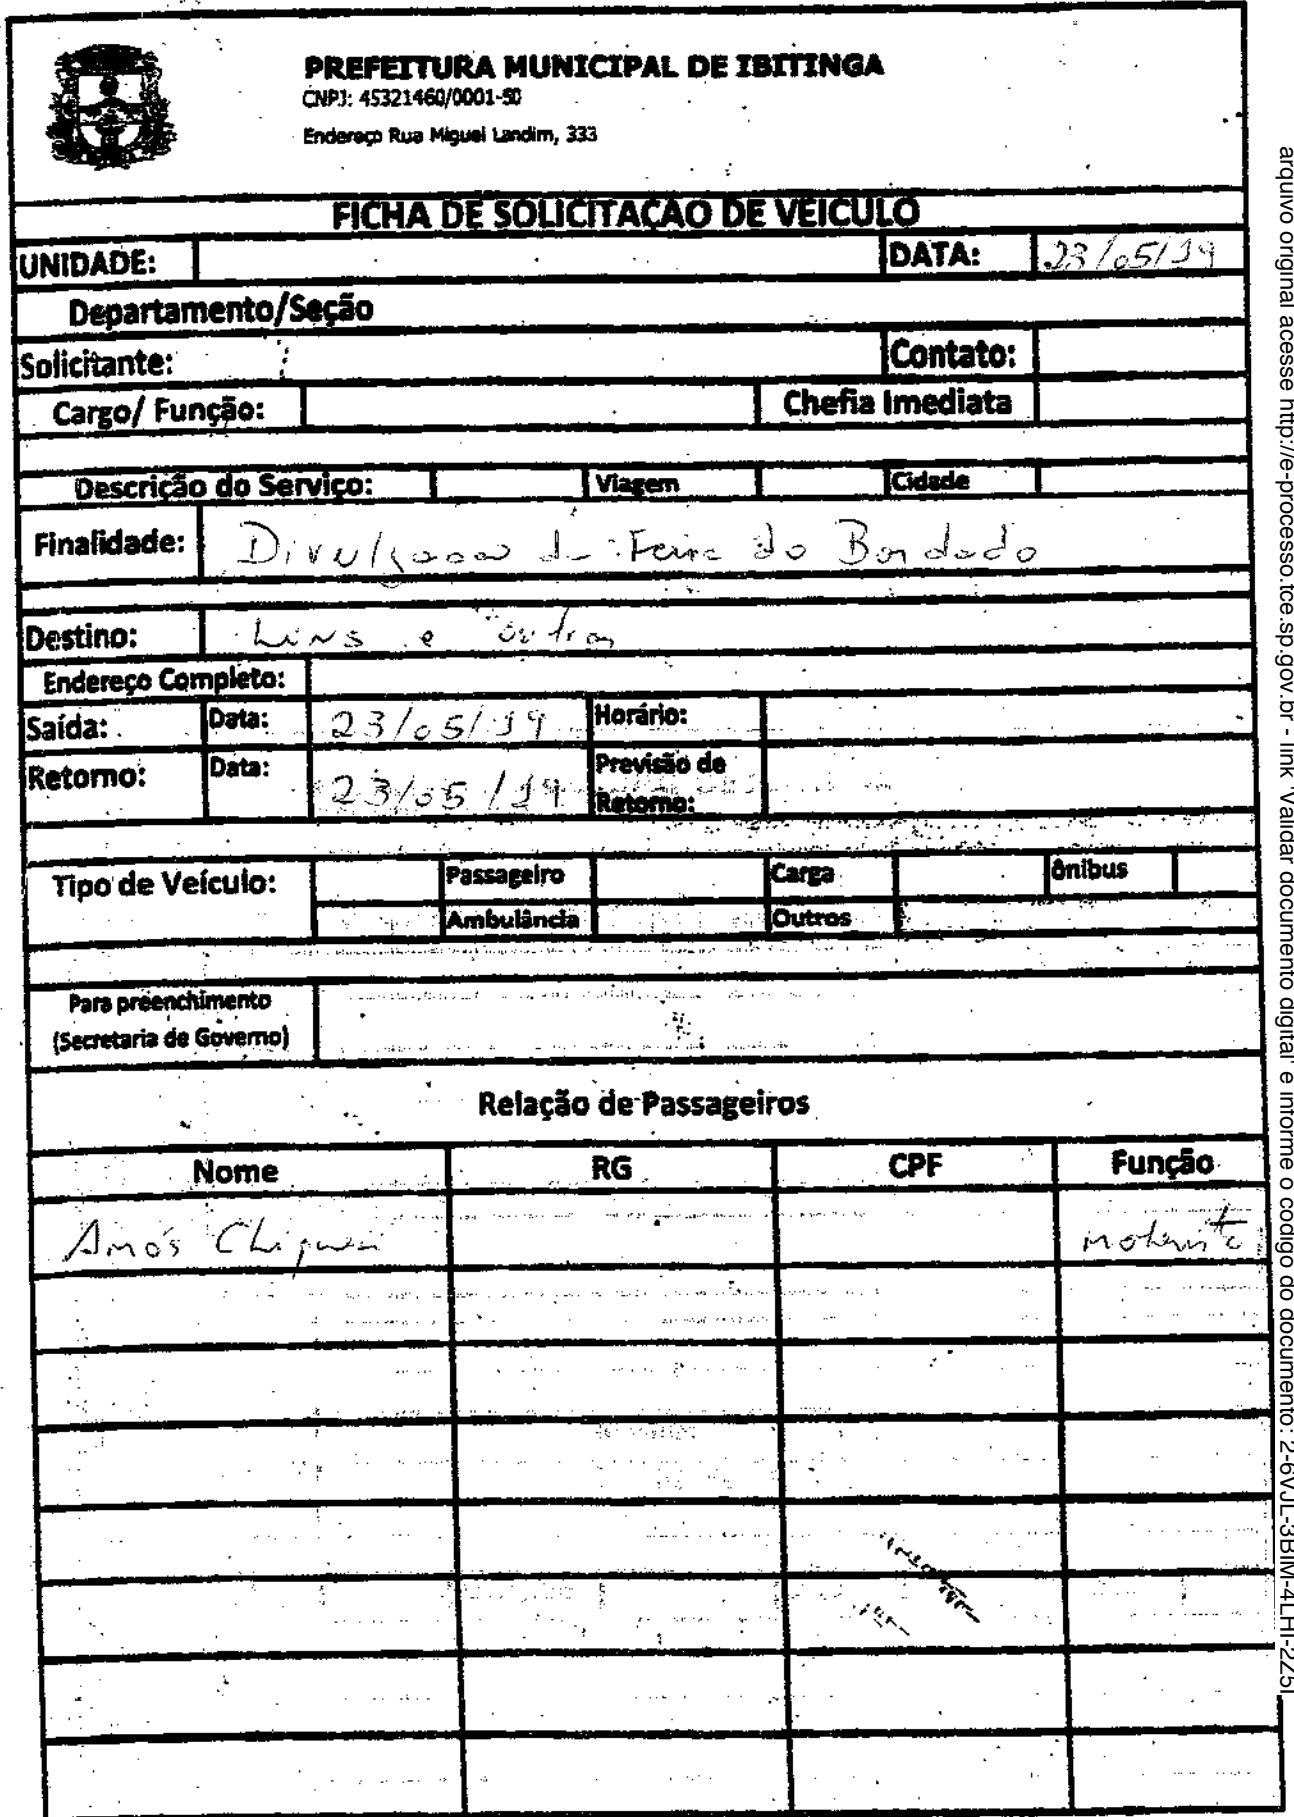 PREFEITURA MUNICIPAL DE IBITINGA
CNPJ: 45321460/0001-50
Endereço Rua Miguel Landim, 333
FICHA DE SOLICITAÇÃO DE VEÍCULO
UNIDADE: DATA: 23/05/19
Departamento/Seção
Solicitante: Contato:
Cargo/ Função: Chefia Imediata
Descrição do Serviço: Viagem Cidade
Finalidade: Divulgacao da Feira do Bordado
Destino: Lins e outras
Endereço Completo:
Saída: Data: 23/05/19 Horário:
Retorno: Data: 23/05/19 Previsão de Retorno:
Tipo de Veículo: Passageiro Carga ônibus
Ambulância Outros
Para preenchimento
(Secretaria de Governo)
Relação de Passageiros
Nome RG CPF Função
Amós motorista
arquivo original acesse http://e-processo.tce.sp.gov.br - link 'Validar documento digital' e informe o codigo do documento: 2-6VJL-3BIM-4LHI-2Z5I